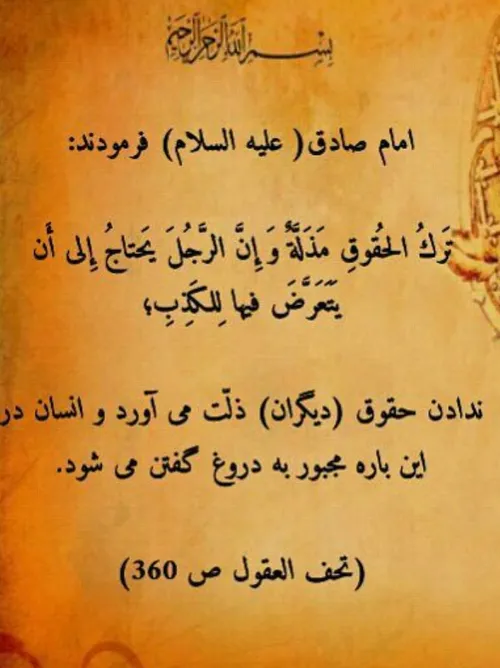 بِسْمِ اللهِ الرَّحْمنِ الرَّحيمِ
امام صادق( علیه السلام) فرمودند:
تَركُ الحُقوقِ مَذَلَّةٌ وَ إِنَّ الرَّجُلَ يَحتاجُ إِلى أَن
يَتَعَرَّضَ فيها لِلكَذِبِ؛
ندادن حقوق (دیگران) ذلّت می آورد و انسان در
این باره مجبور به دروغ گفتن می شود.
(تحف العقول ص 360)